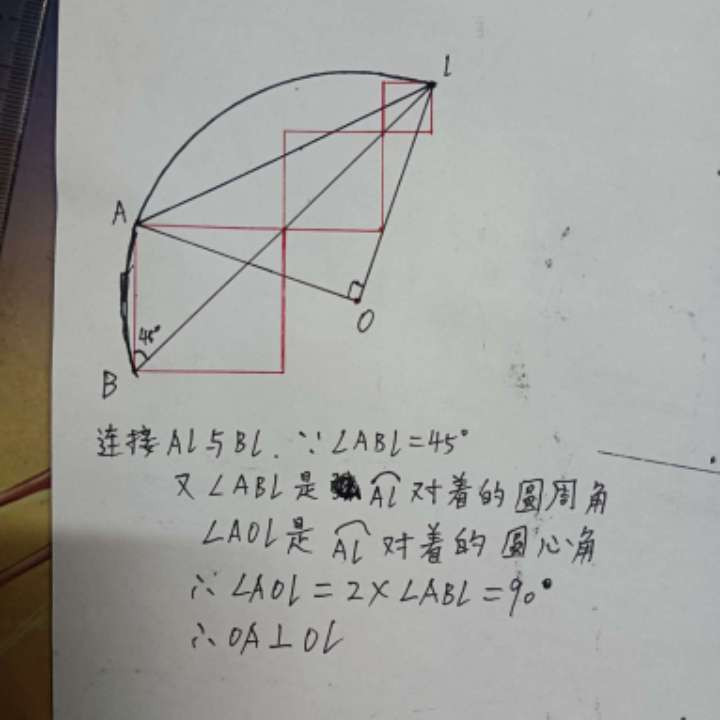 l
A
45°
O
B
连接Al与Bl. ∵∠ABl=45°
又∠ABl是 A͡l对着的圆周角
∠AOl是 A͡l对着的圆心角
∴∠AOl=2×∠ABl=90°
∴OA⊥Ol